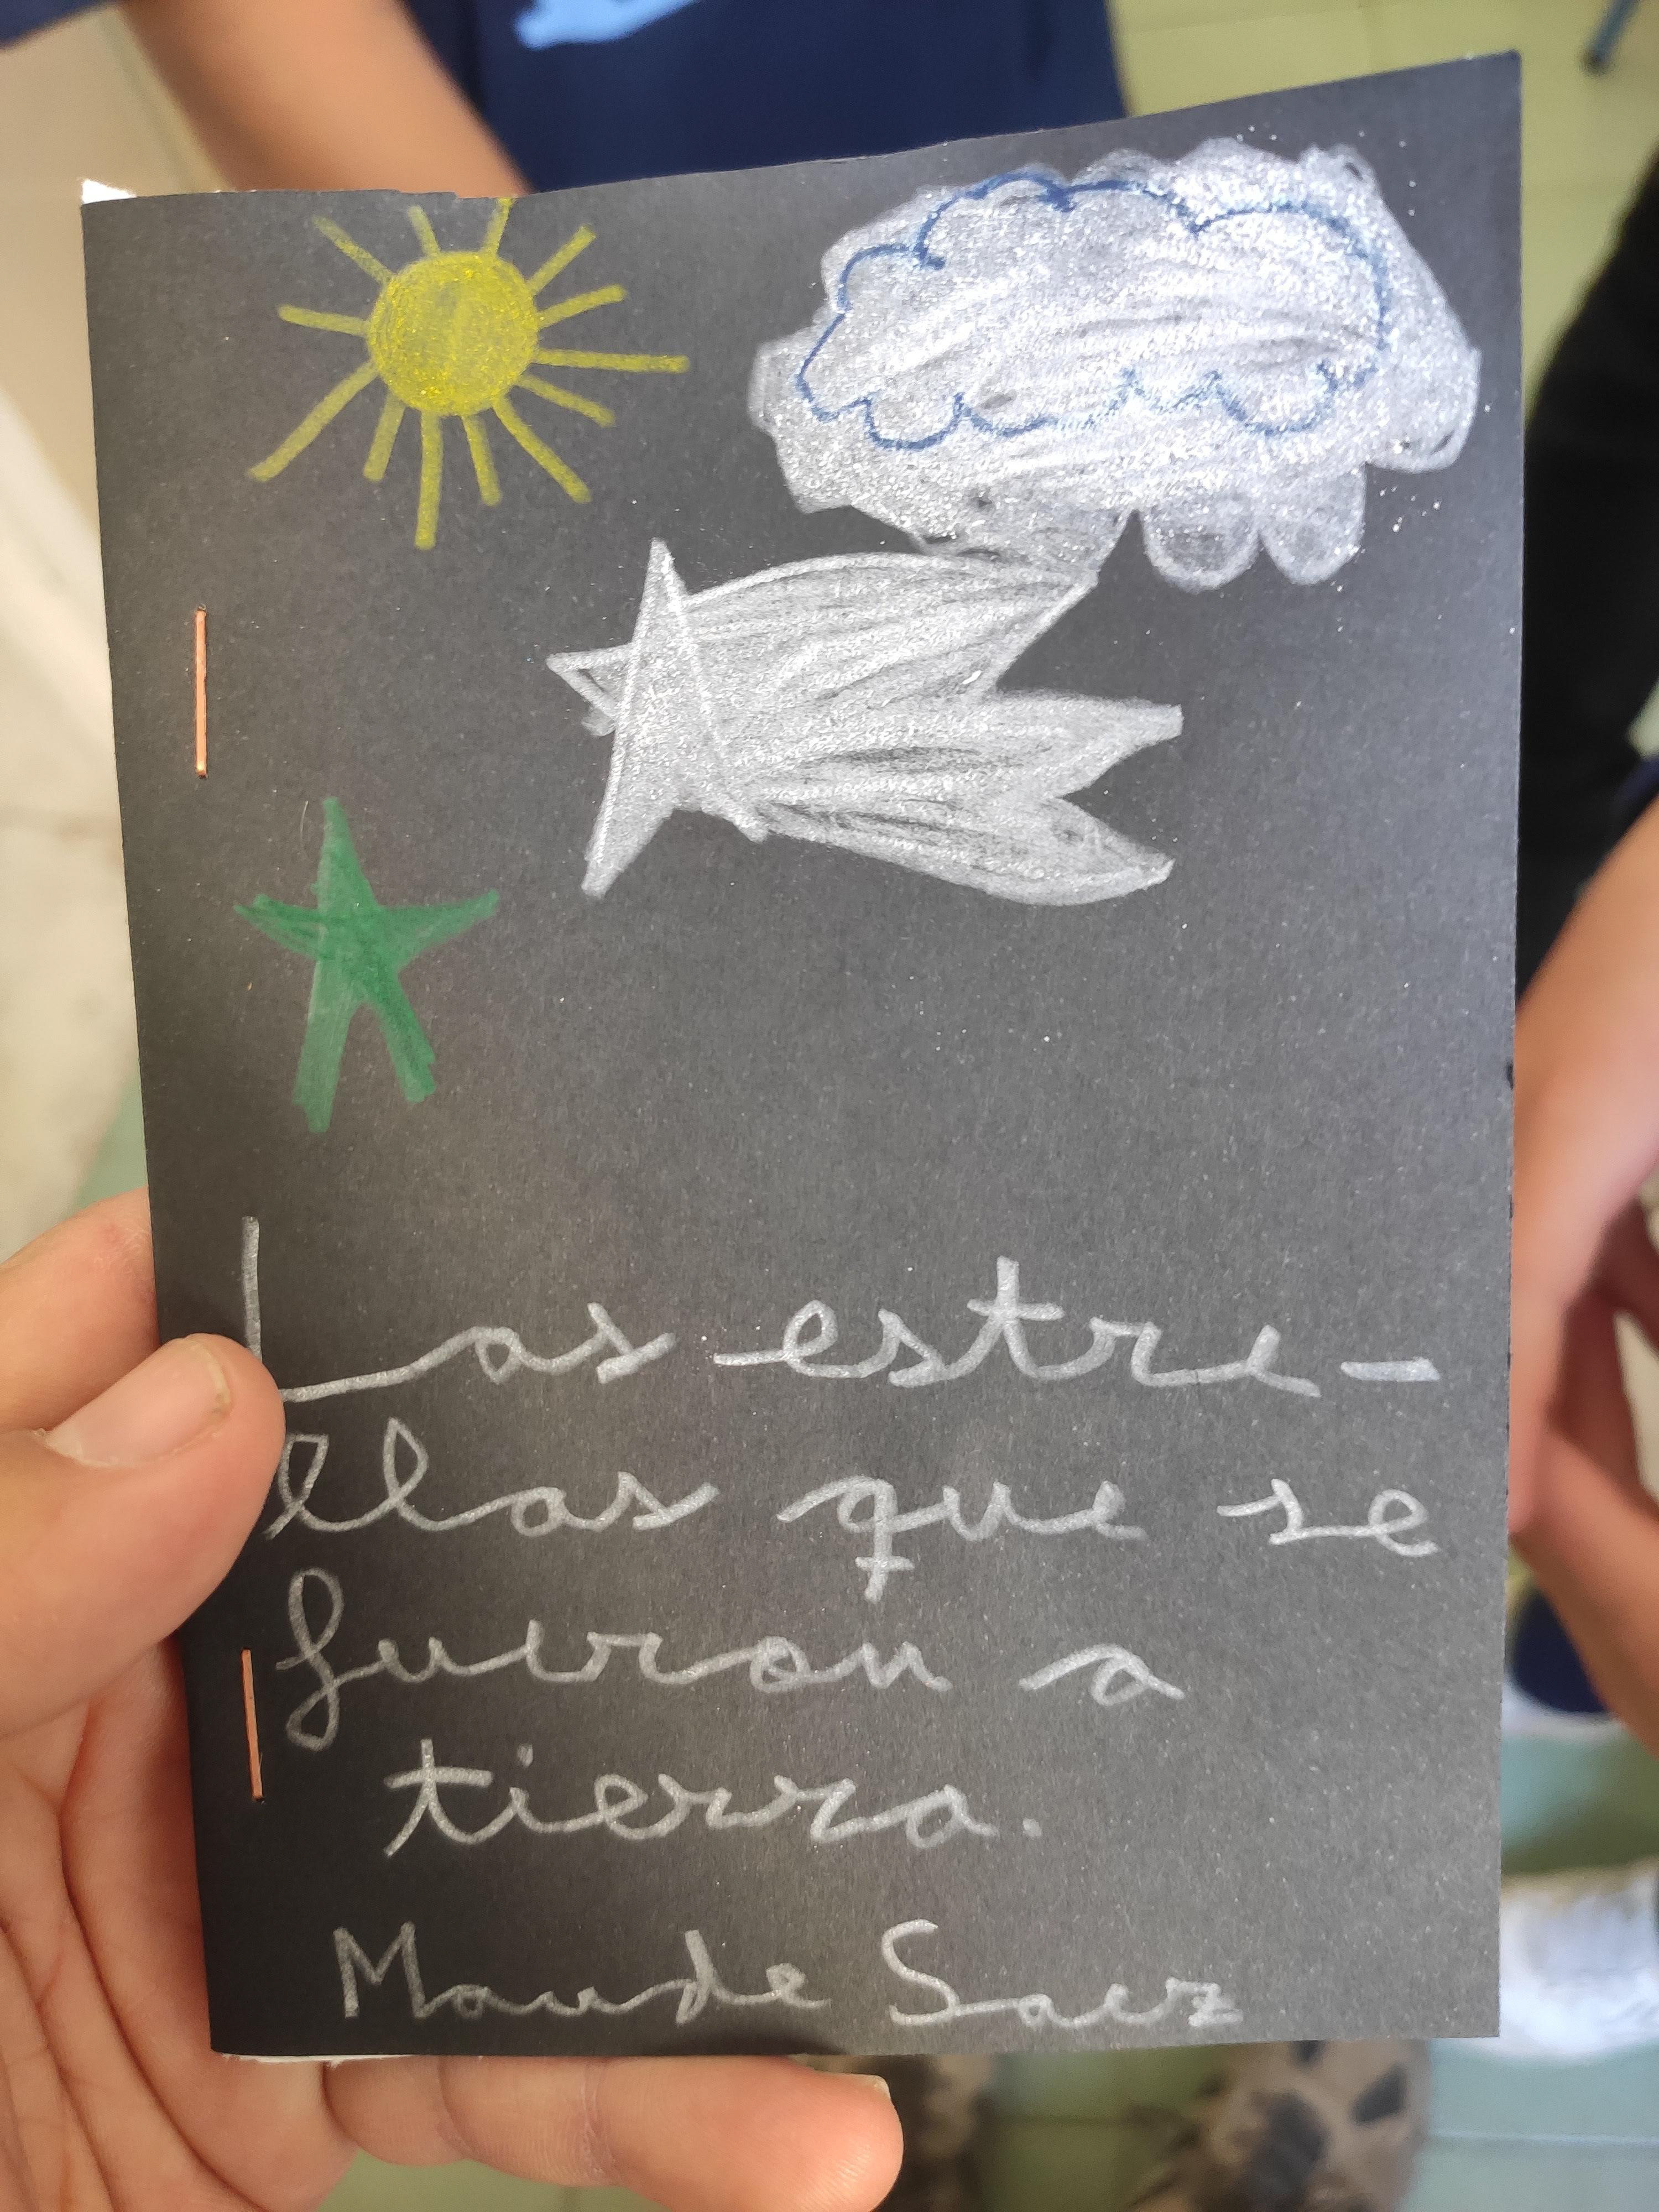 Las estre-
llas que se
fueron a
tierra.
Maude Saez